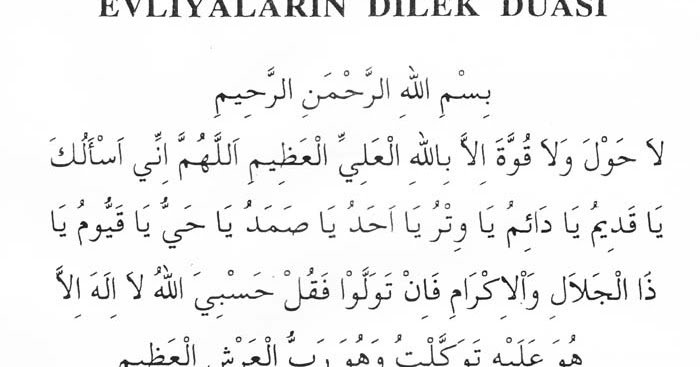 EVLİYALARIN DİLEK DUASI
بِسْمِ اللهِ الرَّحْمَنِ الرَّحِيمِ
لاَ حَوْلَ وَلاَ قُوَّةَ اِلاَّ بِاللهِ الْعَلِيِّ الْعَظِيمِ اَللَّهُمَّ اِنِّي اَسْأَلُكَ
يَا قَدِيمُ يَا دَائِمُ يَا وِتْرُ يَا اَحَدُ يَا صَمَدُ يَا حَيُّ يَا قَيُّومُ يَا
ذَا الْجَلَالِ وَاْلاِكْرَامِ فَاِنْ تَوَلَّوْا فَقُلْ حَسْبِيَ اللهُ لاَ اِلَهَ اِلاَّ
هُوَ عَلَيْهِ تَوَكَّلْتُ وَهُوَ رَبُّ الْعَرْشِ الْعَظِيمِ